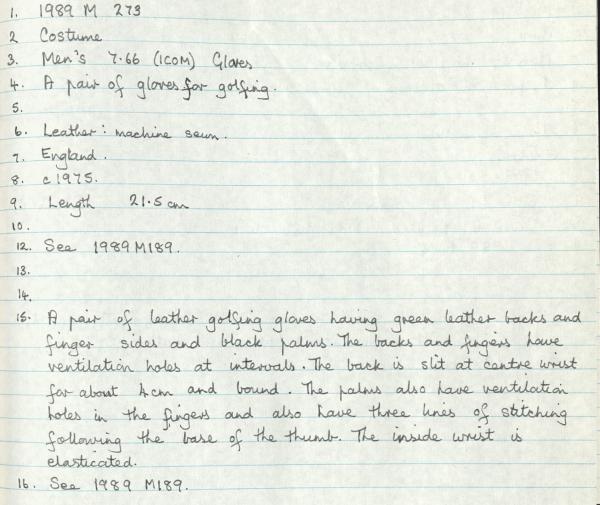 1. 1989 M 273
2 Costume
3. Men's 7.66 (ICOM) Gloves
4. A pair of gloves for golfing.
5.
6. Leather: machine sewn.
7. England.
8. c 1975.
9. Length 21.5 cm
10.
12. See 1989 M189.
13.
14.
15. A pair of leather golfing gloves having green leather backs and
finger sides and black palms. The backs and fingers have
ventilation holes at intervals. The back is slit at centre wrist
for about 4cm and bound. The palms also have ventilation
holes in the fingers and also have three lines of stitching
following the base of the thumb. The inside wrist is
elasticated.
16. See 1989 M189.